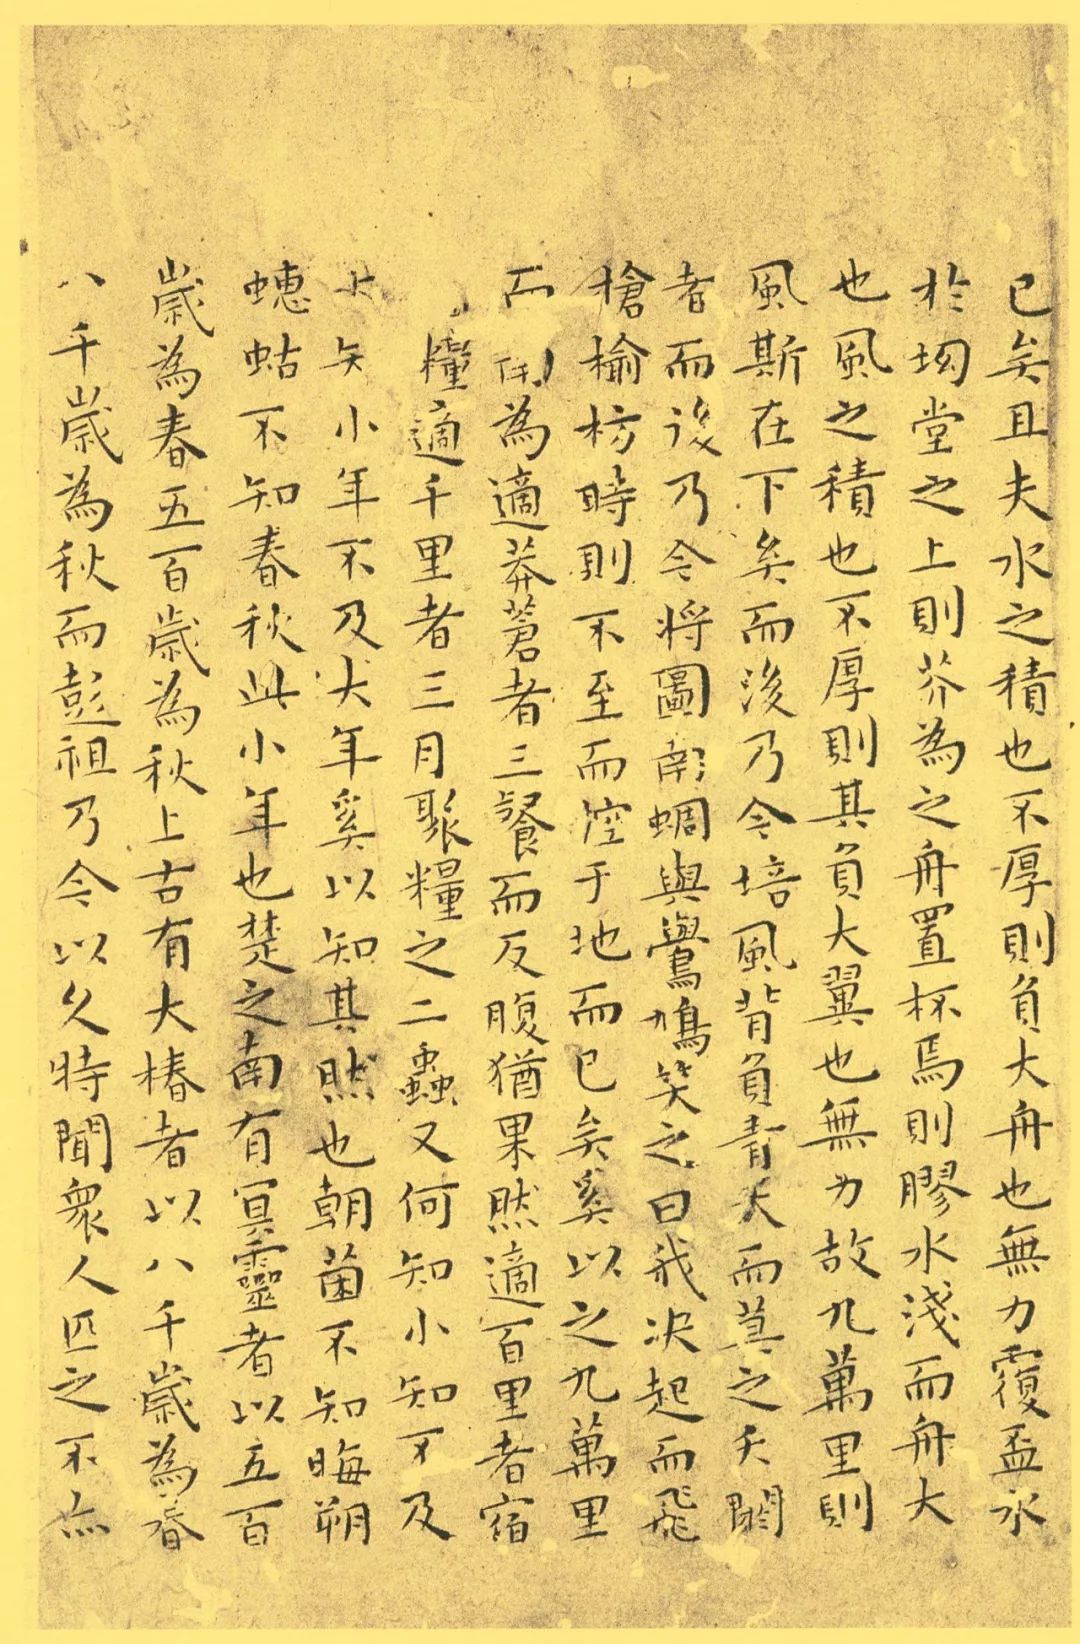 已矣且夫水之積也不厚則負大舟也無力覆盃水
於坳堂之上則芥為之舟置杯焉則膠水淺而舟大
也風之積也不厚則其負大翼也無力故九萬里則
風斯在下矣而後乃今培風背負青天而莫之夭閼
者而後乃今將圖南蜩與鷽鳩笑之曰我决起而飛
槍榆枋時則不至而控于地而已矣奚以之九萬里
而為適莽蒼者三飡而反腹猶果然適百里者宿
糧適千里者三月聚糧之二蟲又何知小知不及
大知小年不及大年奚以知其然也朝菌不知晦朔
蟪蛄不知春秋此小年也楚之南有冥靈者以五百
歲為春五百歲為秋上古有大椿者以八千歲為春
八千歲為秋而彭祖乃今以久時聞衆人匹之不亦